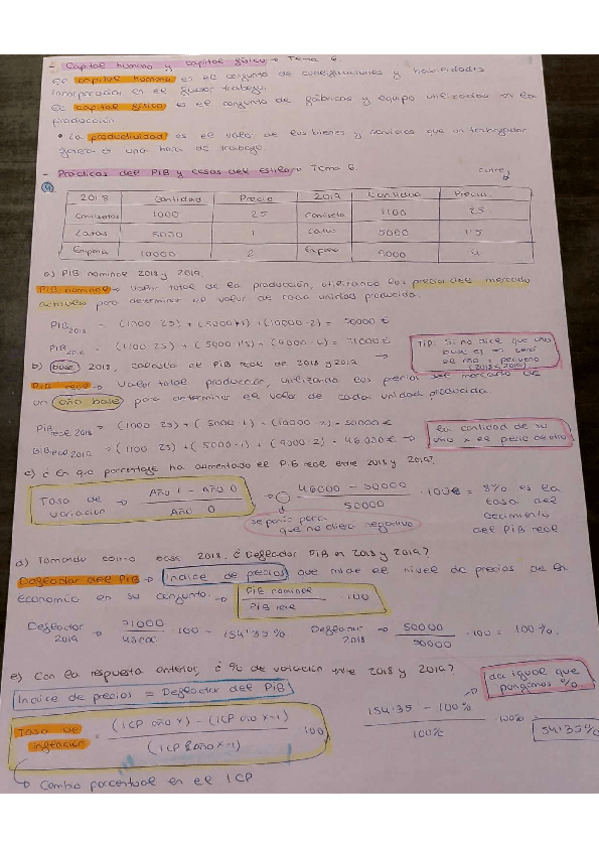 - Capital humano y capital físico → Tema 6.
El capital humano es el conjunto de conocimientos y habilidades
incorporados en el trabajo.
El capital físico es el conjunto de fábricas y equipo utilizados en la
producción
• La productividad es el valor de los bienes y servicios que un trabajador
genera en una hora de trabajo.
- Prácticas del PIB y cosas del estilo → Tema 6.
2018 Cantidad Precio 2019 Cantidad Precio
Camisetas 1000 25 Camiseta 1100 25
Latas 5000 1 Latas 5000 1'5
10000 2 9000 4
a) PIB nominal 2018 y 2019.
PIB nominal → Valor total de la producción, utilizando los precios del mercado
actuales para determinar el valor de cada unidad producida.
PIB 2018 = (1000·25) + (5000·1) + (10000·2) = 50000€
PIB 2019 = (1100·25) + (5000·1'5) + (9000·4) = 71000€ →
TIP: Si no dice que año
base es → será
el más pequeño
(2018 y 2019)
b) base 2018, calcula el PIB real de 2018 y 2019
PIB real → Valor total producción, utilizando los precios de mercado de
un año base para determinar el valor de cada unidad producida.
PIB real 2018 = (1000·25) + (5000·1) + (10000·2) = 50000€
PIB real 2019 = (1100·25) + (5000·1) + (9000·2) = 46000€ →
la cantidad de su
año x el precio de otro
c) ¿En que porcentaje ha aumentado el PIB real entre 2018 y 2019?
Tasa de variación → Año 1 - Año 0 / Año 0
→ 46000 - 50000 / 50000 · 100 = 8% es la
tasa del
crecimiento
del PIB real
se pone para
que no diera negativo
d) Tomando como base 2018. ¿Deflactor PIB en 2018 y 2019?
Deflactor del PIB → Índice de precios que mide el nivel de precios de la
economía en su conjunto. → PIB nominal / PIB real · 100
Deflactor 2019 → 71000 / 46000 · 100 = 154'35% Deflactor 2018 → 50000 / 50000 · 100 = 100%.
e) Con la respuesta anterior, ¿% de variación entre 2018 y 2019?
da igual que
pongamos %
Índice de precios = Deflactor del PIB
Tasa de inflación = (ICP año X) - (ICP año X-1) / (ICP año X-1) · 100
154'35 - 100% / 100% · 100% 54'35%
→ Cambio porcentual en el ICP